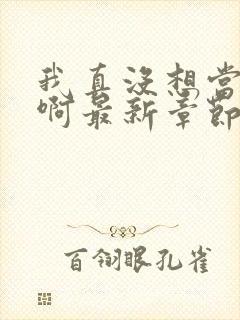 我真没想当
啊最新章节
百翎眼孔雀